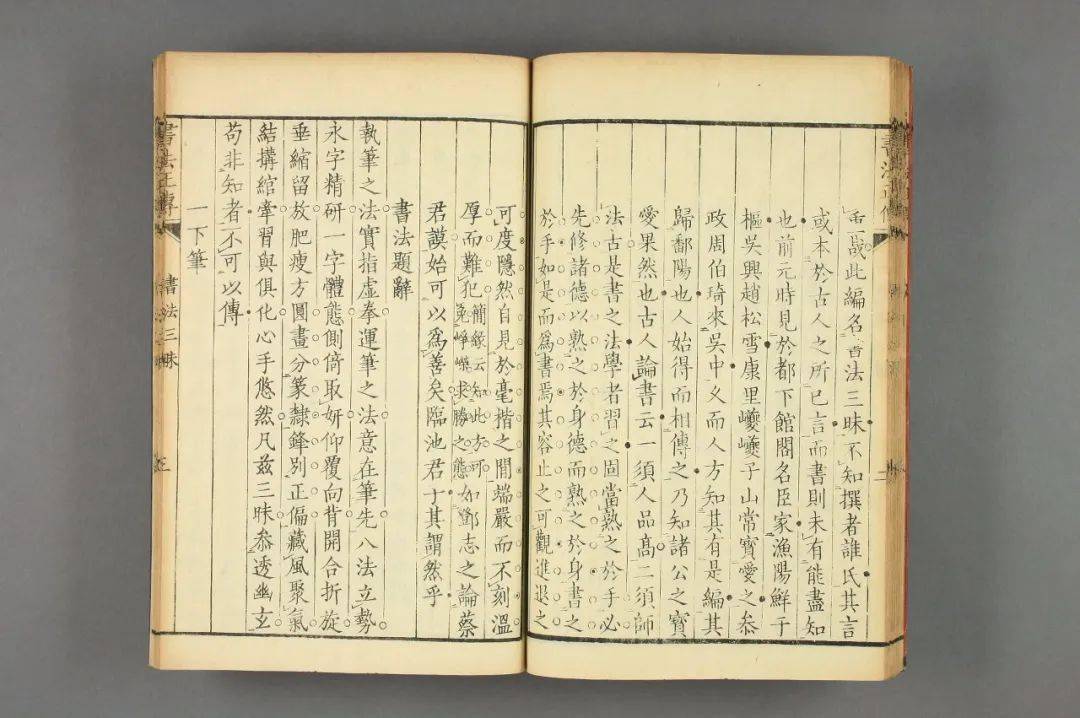 此編名書法三昧不知撰者誰氏其言
或本於古人之所已言而書則未有能盡知
也前元時見於都下館閣名臣家漁陽鮮于
樞吳興趙松雪康里巙巙子山常寳愛之叅
政周伯琦來吳中乂而人方知其有是編其
歸鄱陽也人始得而相傳之乃知諸公之寳
愛果然也古人論書云一須人品髙二須師
法古是書之法學者習之固當熟之於手必
先修諸德以熟之於身德而熟之於身書之
於手如是而爲書焉其容止之可觀進退之
可度隱然自見於毫楮之間端嚴而不刻溫
厚而難犯簡錄云知此方可免崢嶸求勝之態如鄧志之論蔡
君謨始可以爲善矣臨池君子其謂然乎
書法題辭
執筆之法實指虛拳運筆之法意在筆先八法立勢
永字精研一字體態側倚取妍仰覆向背開合折旋
垂縮留放肥瘦方圓畫分篆隸鋒別正偏藏風聚氣
結搆綰牽習與俱化心手悠然凡兹三昧叅透幽玄
苟非知者不可以傳
一下筆
書法正傳
書法三昧